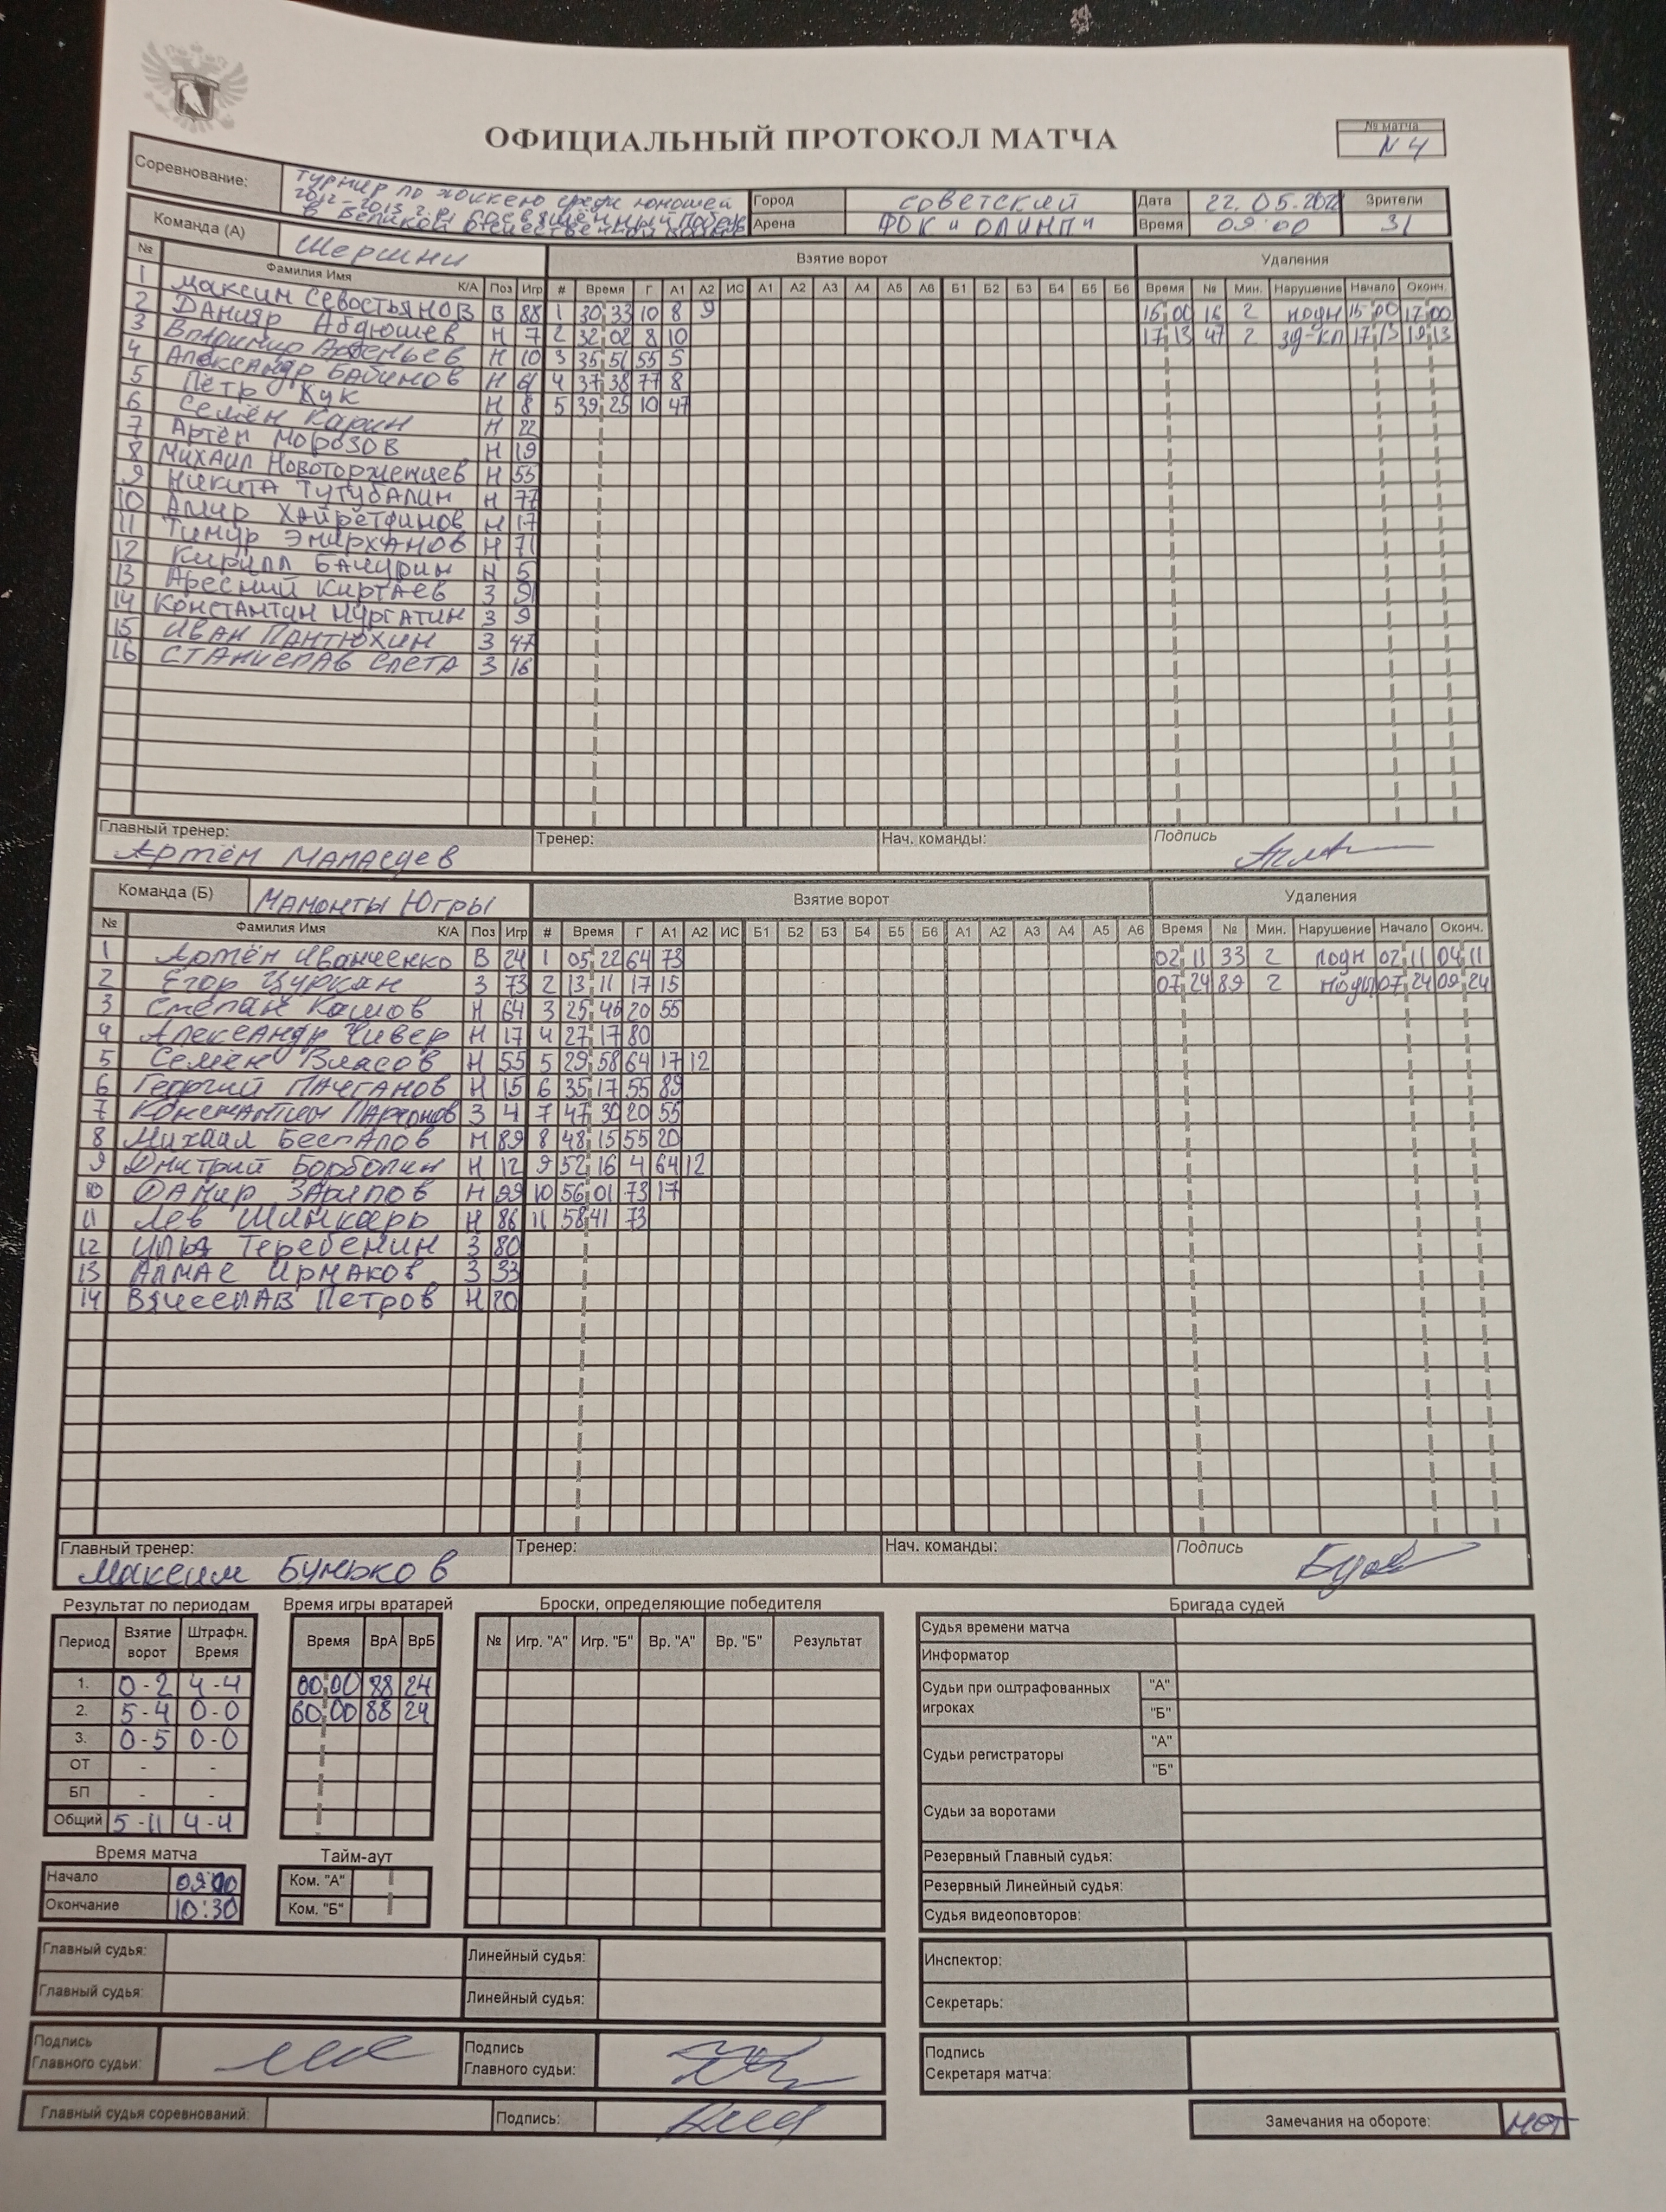 ОФИЦИАЛЬНЫЙ ПРОТОКОЛ МАТЧА
№ матча
N 4
Соревнование: турнир по хоккею среди юношей
2012-2013 г.р. посвящённый Победе
в Великой отечественной войне
Город Советский Дата 22.05.202 Зрители
Арена ФОК "Олимп" Время 09:00 31
Команда (А) Шершни Взятие ворот Удаления
№ Фамилия Имя К/А Поз Игр # Время Г А1 А2 ИС А1 А2 А3 А4 А5 А6 Б1 Б2 Б3 Б4 Б5 Б6 Время № Мин. Нарушение Начало Оконч.
1 Максим Севостьянов В 88 1 30 33 10 8 9 15 00 16 2 подн 15 00 17 00
2 Данияр Абдюшев Н 7 2 32 02 8 10 17 13 47 2 зд-кл 17 13 19 13
3 Владимир Арсеньев Н 10 3 35 51 55 5
4 Александр Бабинов Н 61 4 37 38 77 8
5 Пётр Кук Н 8 5 39 25 10 47
6 Семён Карин Н 22
7 Артём Морозов Н 19
8 Михаил Новоторженцев Н 55
9 Никита Тутубалин Н 77
10 Амир Хайретдинов Н 17
11 Тимур Энирханов Н 71
12 Кирилл Бачурин Н 5
13 Аресний Киртаев З 91
14 Константин Нургатин З 9
15 Иван Пантюхин З 47
16 Станислав Слета З 16
Главный тренер: Тренер: Нач. команды: Подпись
Артём
Команда (Б) Мамонты Югры Взятие ворот Удаления
№ Фамилия Имя К/А Поз Игр # Время Г А1 А2 ИС Б1 Б2 Б3 Б4 Б5 Б6 А1 А2 А3 А4 А5 А6 Время № Мин. Нарушение Начало Оконч.
1 Артём Иванченко В 24 1 05 22 64 73 02 11 33 2 подн 02 11 04 11
2 Егор Цуркан З 73 2 13 11 17 15 07 24 89 2 07 24 09 24
3 Степан Кашов Н 64 3 25 46 20 55
4 Александр Чивер Н 17 4 27 17 80
5 Семён Власов Н 55 5 29 58 64 17 12
6 Георгий Пачганов Н 15 6 35 17 55 89
7 Константин З 4 7 47 30 20 55
8 Михаил Беспалов Н 89 8 48 15 55 20
9 Дмитрий Борболин Н 12 9 52 16 4 64 12
10 Дамир Зарипов Н 99 10 56 01 73 17
11 Лев Шинкарь Н 86 11 58 41 73
12 Илья Теребенин З 80
13 Алмас Ирмаков З 33
14 Вячеслав Петров Н 20
Главный тренер: Тренер: Нач. команды: Подпись
Максим Буньков
Результат по периодам Время игры вратарей Броски, определяющие победителя Бригада судей
Период Взятие ворот Штрафн. Время Время ВрА ВрБ № Игр. "А" Игр. "Б" Вр. "А" Вр. "Б" Результат
1. 0-2 4-4 00 00 88 24
2. 5-4 0-0 60 00 88 24
3. 0-5 0-0
ОТ - -
БП - -
Общий 5-11 4-4
Судья времени матча
Информатор
Судьи при оштрафованных игроках "А"
"Б"
Судьи регистраторы "А"
"Б"
Судьи за воротами
Резервный Главный судья:
Резервный Линейный судья:
Судья видеоповторов:
Время матча Тайм-аут
Начало 09:00 Ком. "А"
Окончание 10:30 Ком. "Б"
Главный судья: Линейный судья: Инспектор:
Главный судья: Линейный судья: Секретарь:
Подпись Главного судьи: Подпись Главного судьи: Подпись Секретаря матча:
Главный судья соревнований: Подпись: Замечания на обороте: нет